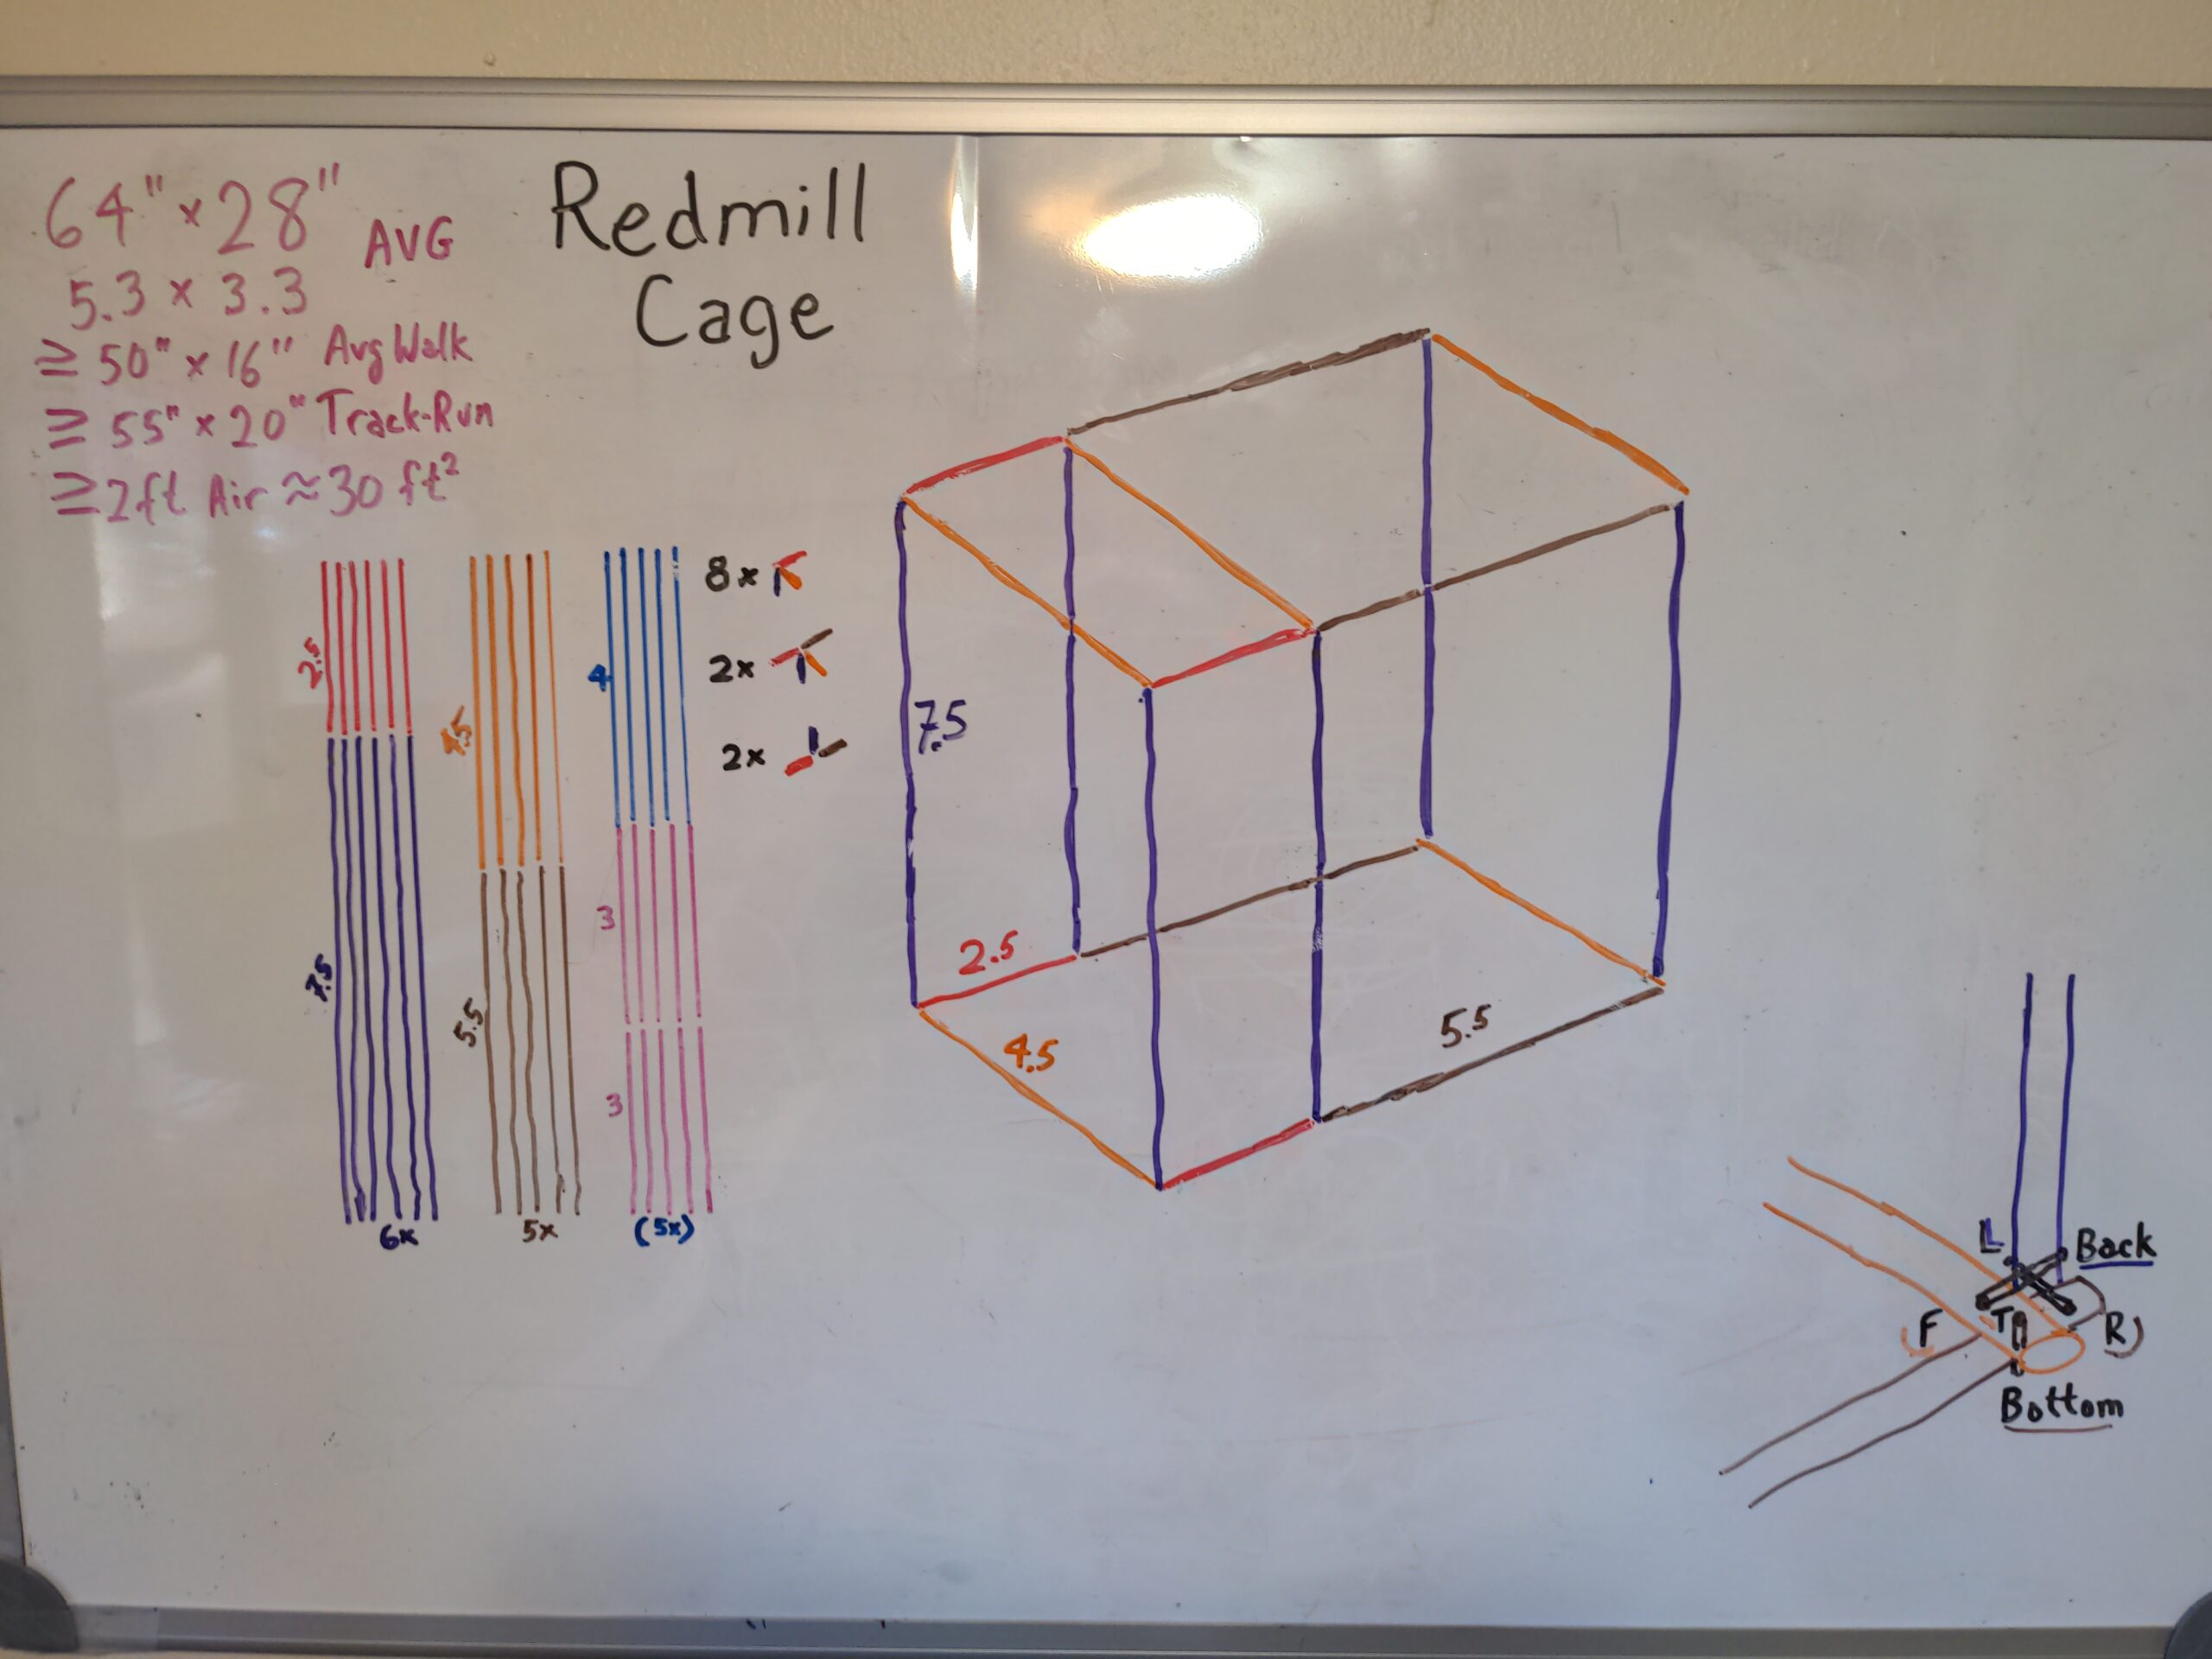 64" × 28" AVG
5.3 × 3.3
≥ 50" × 16" Avg Walk
≥ 55" × 20" Track-Run
≥ 2ft Air ≈ 30 ft²
Redmill
Cage
2.5
7.5
6x
4.5
5.5
5x
4
3
3
(5x)
8x
2x
2x
7.5
2.5
4.5
5.5
L
Back
F
T
R
Bottom